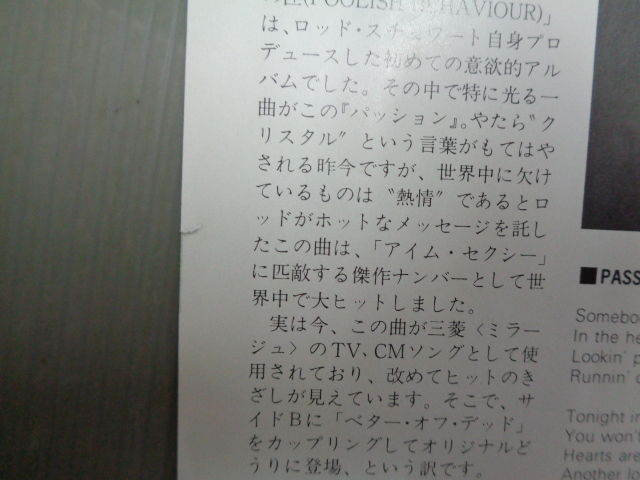 (FOOLISH BEHAVIOUR)」
は、ロッド・スチュワート自身プロ
デュースした初めての意欲的アル
バムでした。その中で特に光る一
曲がこの『パッション』。やたら〝ク
リスタル〟という言葉がもてはや
される昨今ですが、世界中に欠け
ているものは〝熱情〟であるとロ
ッドがホットなメッセージを託し
たこの曲は、「アイム・セクシー」
に匹敵する傑作ナンバーとして世
界中で大ヒットしました。
実は今、この曲が三菱〈ミラー
ジュ〉のTV、CMソングとして使
用されており、改めてヒットのき
ざしが見えています。そこで、サ
イドBに「ベター・オフ・デッド」
をカップリングしてオリジナルど
うりに登場、という訳です。
■PASS
Somebo
In the he
Lookin' p
Runnin'
Tonight in
You won't
Hearts are
Another lo